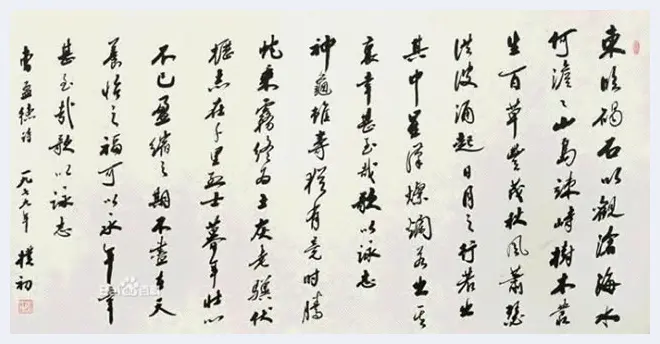 東臨碣石以觀滄海水
何澹〻山島竦峙樹木叢
生百草豐茂秋風蕭瑟
洪波涌起日月之行若出
其中星漢燦爛若出其
裏幸甚至哉歌以詠志
神龜雖壽猶有竟時騰
蛇乘霧終爲土灰老驥伏
櫪志在千里烈士暮年壯心
不已盈縮之期不盡在天
養怡之福可以永年幸
甚至哉歌以詠志
曹孟德詩 一九七九年 樸初
Bai百科